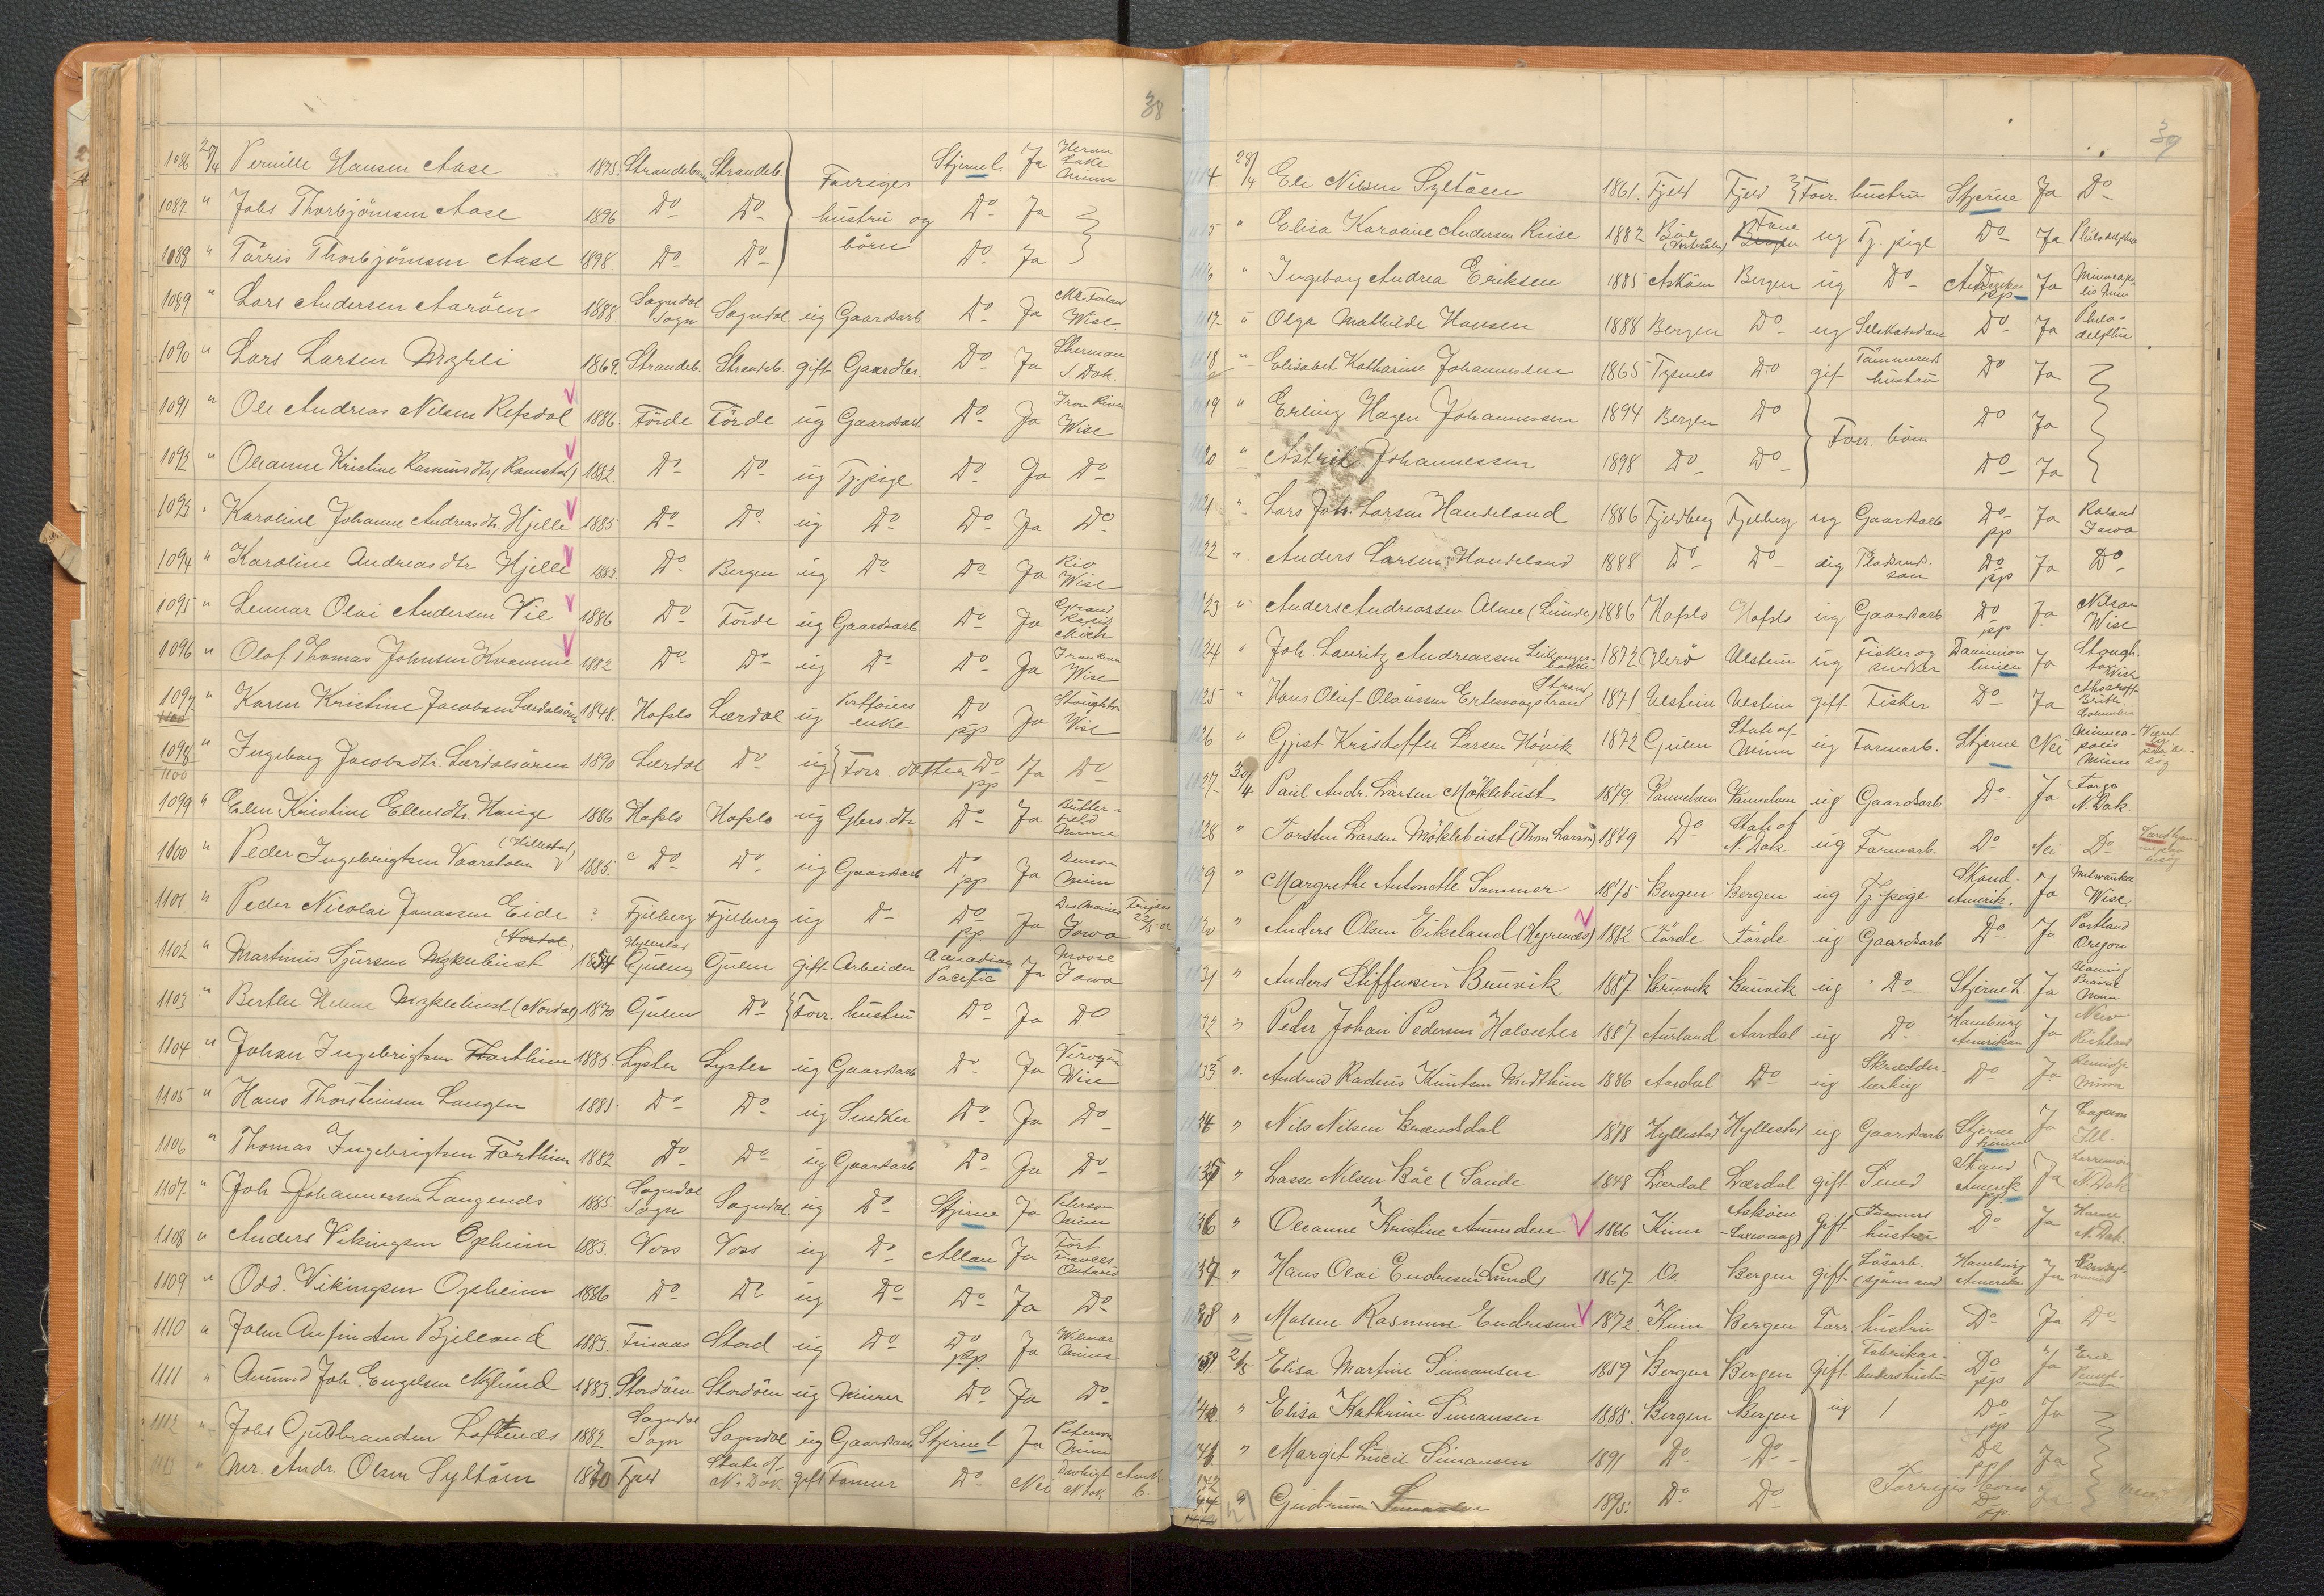 38
1086 28/4 Pernille Hansen Aase 1875. Strandebarm Strandeb. Forriges hustru og börn Stjernel. Ja Heron Lake Minn
1087. " Johs Thorbjörnsen Aase 1896 Do Do Do Ja
1088 " Törris Thorbjörnsen Aase 1898. Do Do Do Ja
1089 " Lars Andersen Aaröen 1888. Sogndal Sogn Sogndal ug Gaardsarb Do Ja Mc Farland Wisc.
1090 " Lars Larsen Myhli 1869. Strandeb. Strandeb. gift Gaardbr. Do Ja Sherman S Dak.
1091 " Ole Andreas Nilsen Refsdal 1886. Förde Förde ug Gaardsarb Do Ja Iron River Wisc
1092 " Oleanne Kristine Rasmusdtr (Ramstad) 1882. Do Do ug Tj.pige Do Ja Do
1093 " Karoline Johanne Andreasdtr. Hjelle 1885 Do Do ug Do Do Ja Do
1094 " Karoline Andreasdtr Hjelle 1883. Do Bergen ug Do Do Ja Rio Wisc
1095 " Lennar Olai Andersen Vie 1886 Do Förde ug Gaardsarb Do Ja Grand Rapid Mich
1096 " Olaf Thomas Johnsen Kvamme 1882 Do Do ug Do Do Ja Iron River Wisc
1097 " Karen Kristine Jacobsen Lærdalsören 1848. Hafslo Lærdal ug enke Do pp Ja Stoughton Wisc
1098 1100 " Ingeborg Jacobsdtr. Lærdalsören 1890 Lærdal Do ug Forr. datter Do pp Ja Do
1099 " Elen Kristine Ellensdtr. Hauge 1886 Hafslo Hafslo ug Gbrs.dtr Do Ja Butterfield Minn
1100 " Peder Ingebrigtsen Vaarstoen (Hillestad) 1885. Do Do ug Gaardsarb Do pp. Ja Benson Minn
1101 " Peder Nicolai Jonassen Eide ? Fjelberg Fjelberg ug Do Do pp. Ja Des Moines Iowa
1102 " Martinus Sjursen Myklebust (Nordal) 1854 Hyllestad Gulen Gulen gift Arbeider Canadian Pacific Ja Moose Iowa
1103 " Berthe Helene Myklebust (Nordal) 1870 Gulen Do Forr. hustru Do Ja Do
1104 " Johan Ingebrigtsen Farthun 1885. Lyster Lyster ug Gaardsarb Do Ja Viroqua Wisc
1105 " Hans Thorsteinsen Langen 1881. Do Do ug Snedker Do Ja Do
1106 " Thomas Ingebrigtsen Farthun 1882 Do Do ug Gaardsarb Do Ja Do
1107. " Joh Johannessen Laugends 1885 Sogndal Sogn Sogndal ug Do Stjerne Ja Peterson Minn
1108 " Anders Vikingsen Opheim 1883. Voss Voss ug Do Allan Ja Fort Frances Ontario
1109 " Odd. Vikingsen Opheim 1886 Do Do ug Do Do Ja Do
1110 " John Anfindsen Bjelland 1883. Finaas Stord ug Do Do pp. Ja Wilmar Minn
1111 " Amund Joh. Engelsen Nylund 1883. Stordöen Stordöen ug Murer Do Ja Do
1112 " Johs Gudbrandsen Loftesnes 1882. Sogndal Sogn Sogndal ug Gaardsarb Stjernel Ja Peterson Minn
1113 " Mr. Andr. Olsen Syltöen 1870 Fjeld State of N. Dak. gift Farmer Do Nei N. Dak.
39
1114. 28/4 Eli Nilsen Syltöen 1861. Fjeld Fjeld Forr. hustru Stjerne Ja Do
1115 " Elisa Karoline Andersen Riise 1882 Böe Bergen Fane ug Tj. pige Do Ja Philadelphia
1116 " Ingeborg Andrea Eriksen 1885 Asköen Bergen ug Do Amerika pp. Ja Minneapolis Minn
1117 " Olga Mathilde Hansen 1888 Bergen Do ug Selskabsdame Do Ja Philadelphia
1118 " Elisabet Katharine Johannessen 1865 Tysnes Do gif Tömmermds hustru Do Ja
1119 " Erling Hagen Johannessen 1894 Bergen Do Forr. börn Do Ja
1120 " Astrid Johannessen 1898 Do Do Do Ja
1121 " Lars Joh. Larsen Handeland 1886 Fjeldberg Fjelberg ug Gaardsarb Do pp Ja Roland Iowa
1122 " Anders Larsen Handeland 1888 Do Do ug Pladsmds. søn Do pp Ja Do
1123 " Anders Andreassen Alme (Lunde) 1886 Hafslo Hafslo ug Gaardsarb Do pp Ja Nilson Wisc
1124 " Joh. Lauritz Andreassen Leikanger- bakke 1872 Herö Ulstein ug Fisker og snedker Dominion linien Ja Stoughton Wisc
1125 " Hans Oluf Olaussen Ertesvaagstrand Strand 1871 Ulstein Ulstein gift Fisker Do Ja Ashcroft British Columbia
1126 " Gjert Kristoffer Larsen Hövik 1872 Gulen State of Minn ug Farmarb. Stjerne Nei Minneapolis Minn
1127 30/4 Paul Andr. Larsen Möklebust 1879. Vannelven Vannelven ug Gaardsarb Do Ja Fargo N. Dak.
1128 " Torsten Larsen Möklebust (Thom Larson) 1879 Do State of N. Dak ug Farmarb. Do Nei Do
1129 " Margrethe Antonette Sommer 1875 Bergen Bergen ug Tj.pige Skand. Amerik. Ja Milwaukee Wisc.
1130 " Anders Olsen Eikeland 1882. Förde Förde ug Gaardsarb Do Ja Portland Oregon
1131 " Anders Steffensen Brunvik 1887 Brunvik Brunvik ug Do Stjerne L. Ja Blooming Prairie Minn
1132 " Peder Johan Pedersen Halsæter 1887. Aurland Aardal ug Do Hamburg Amerikan Ja New Richland
1133 " Andrew Radius Knutsen Midthun 1886 Aardal Do ug Skrædder- lærling Do Ja Bemidji Minn
1134 " Nils Nilsen Brændsdal 1878 Hyllestad Hyllestad ug Gaardsarb Stjerne linien Ja Ill.
1135 " Lasse Nilsen Böe (Sande 1848 Lærdal Lærdal gift Smed Skand Amerik pp Ja N. Dak
1136 " Oleanne Kristine Amundsen 1866 Kinn Asköen gift hustru Do Ja N. Dak.
1137 " Hans Olai Endresen (Lund) 1867. Os Bergen gift Lösarb. (sjömand Hamburg Amerika Ja
1138 " Malene Rasmine Endresen 1872 Kinn Bergen Forr. hustru Do Ja Do
1139. 2/5 Elisa Martine Simonsen 1859 Bergen Bergen gift Do pp Ja Erie
1140. " Elisa Kathrine Simonsen 1888. Bergen Bergen ug Do pp Ja
1141 " Margit Lucie Simonsen 1891 Do Do Do pp Ja
1142 " Gudrun Simonsen 1895. Do Do Forriges börn Do pp.